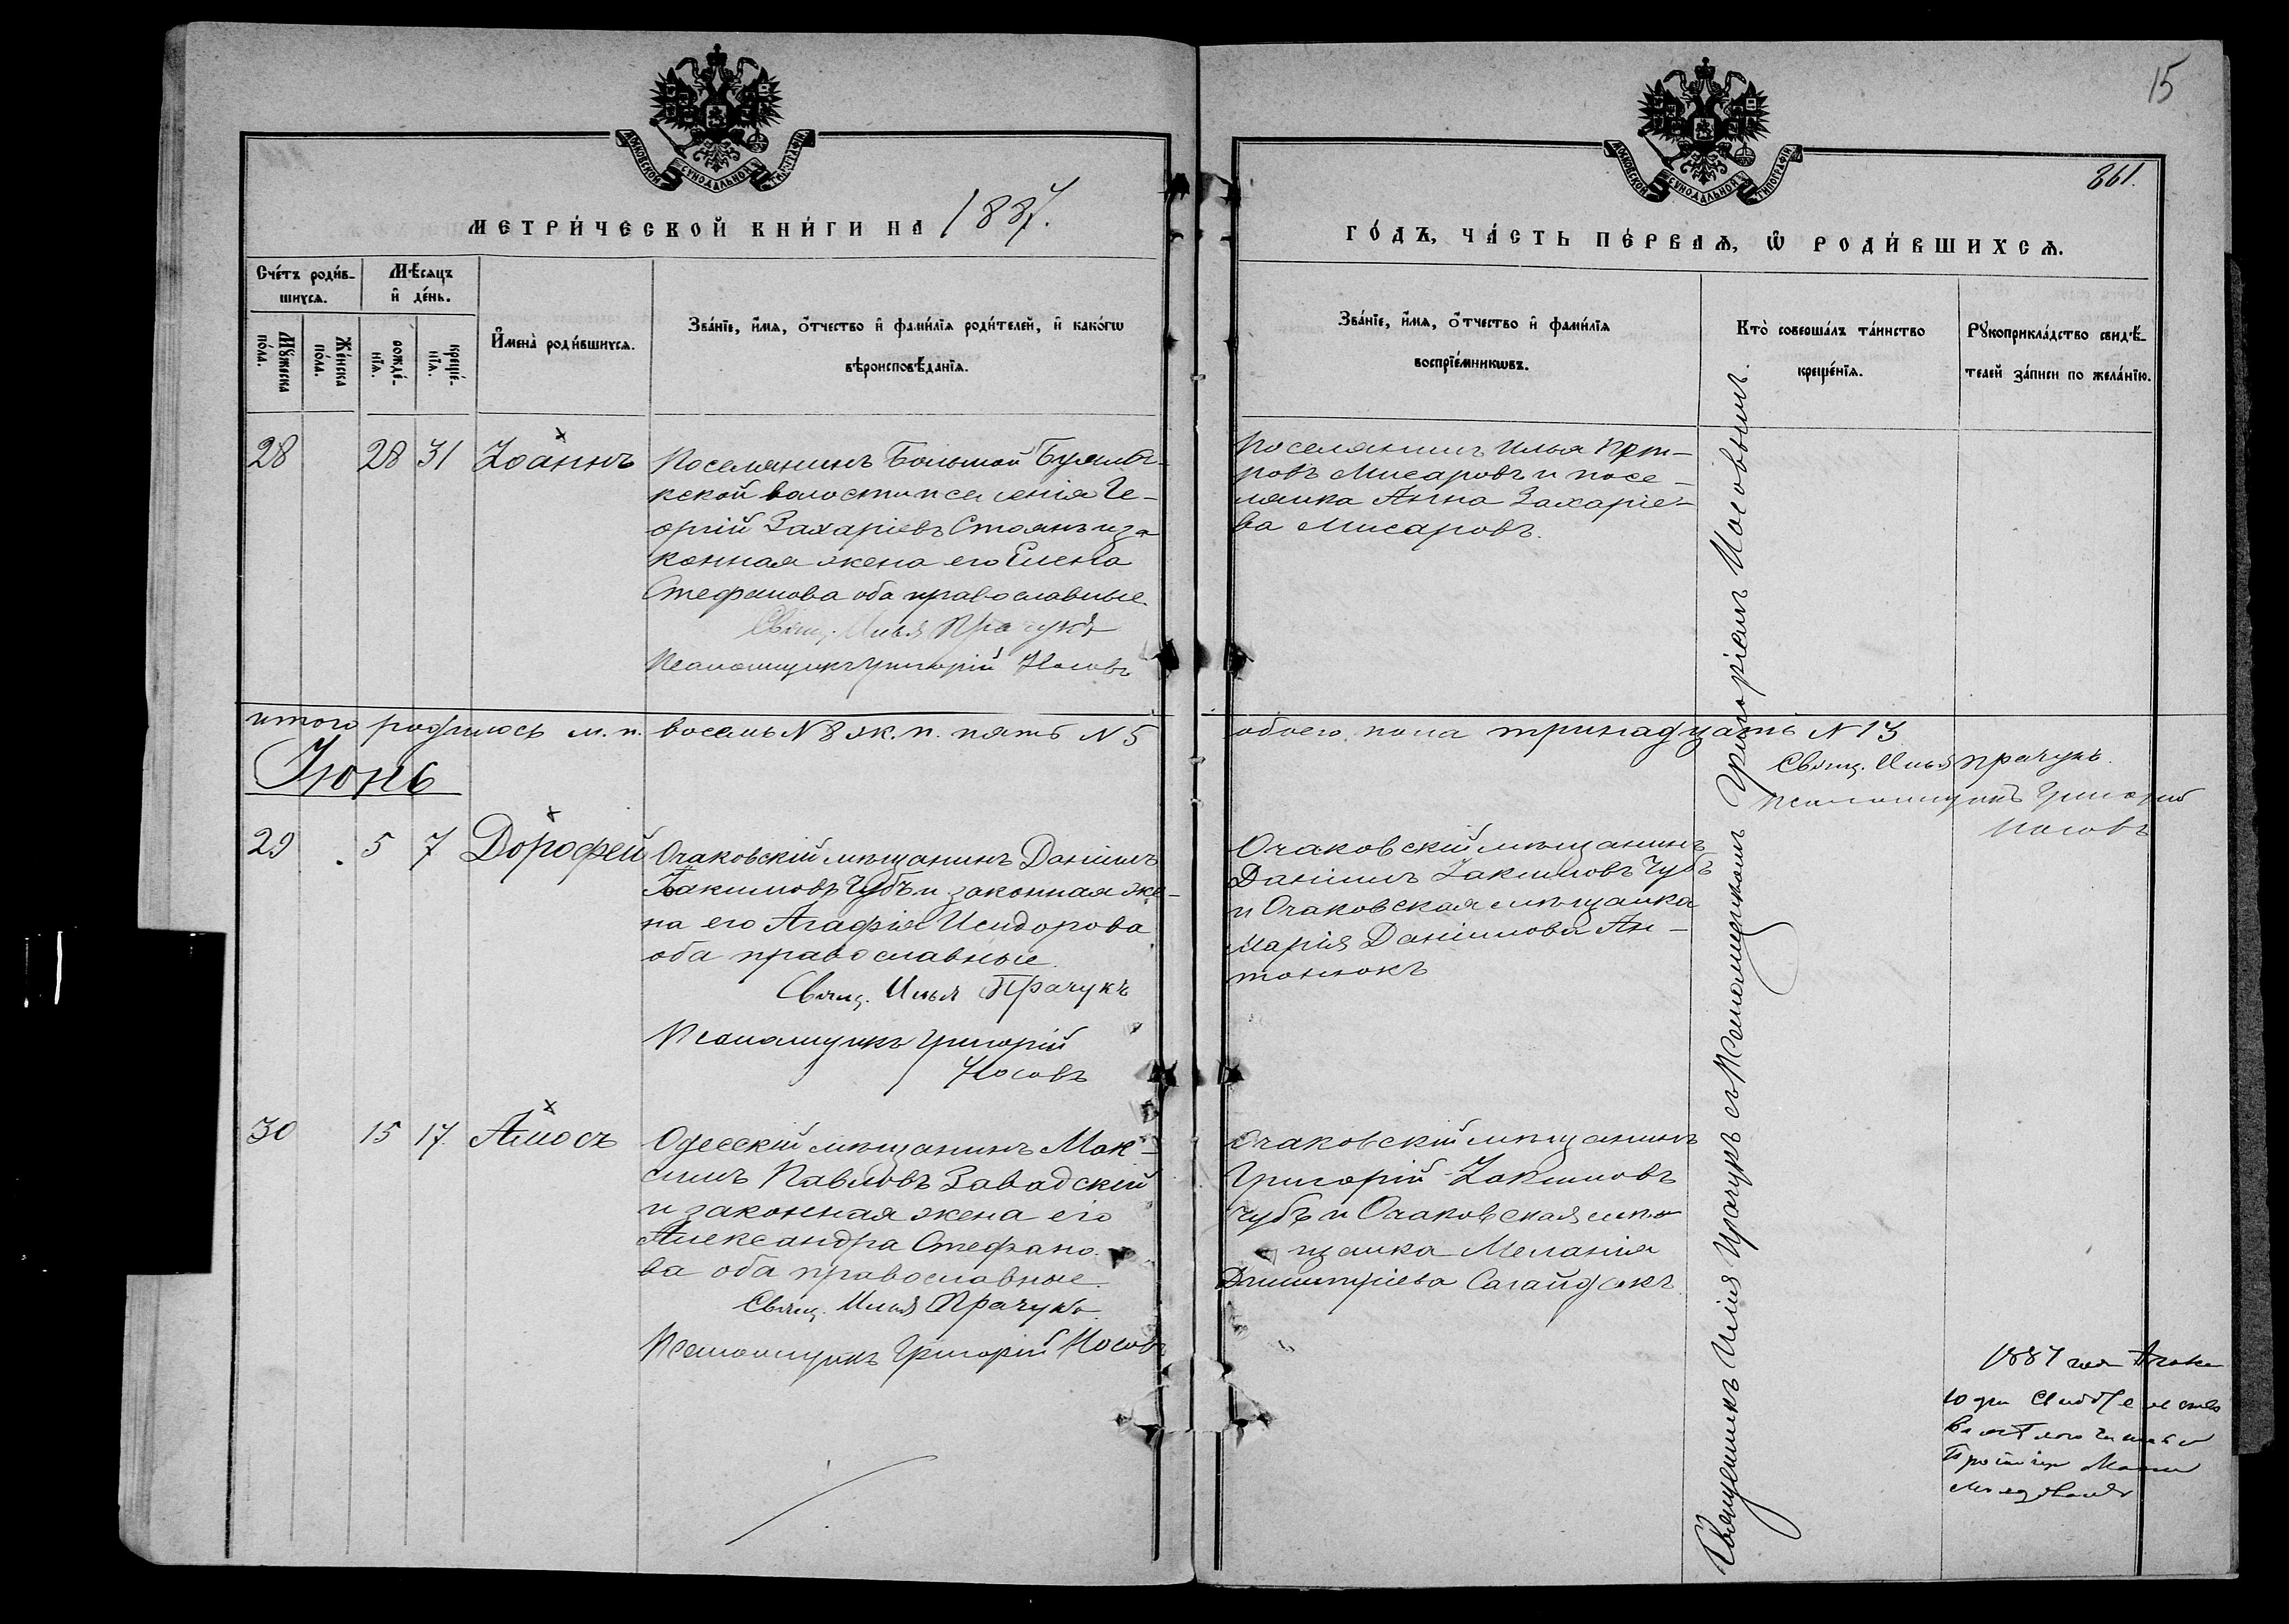 15
861.
МЕТРИ́ЧЕСКОЙ КНИ́ГИ НА 1887.
ГО́ДЪ, ЧА́СТЬ ПЕ́РВАѦ, Ѡ РОДИ́ВШИХСѦ.
Сче́тъ роди́в-
шихсѧ.
Мѣ́сѧцъ
и҆ де́нь.
Мꙋ́жеска
по́ла.
Же́нска
по́ла.
рожде́-
нїѧ.
креще́-
нїѧ.
И҆мена̀ роди́вшихсѧ.
Зва́нїе, и҆́мѧ, о҆́тчество и҆ фами́лїѧ роди́телей, и҆ како́гѡ
вѣроисповѣ́данїѧ.
Зва́нїе, и҆́мѧ, о҆́тчество и҆ фами́лїѧ
воспрїе́мникѡвъ.
Кто̀ соверша́лъ та́инство
креще́нїѧ.
Рꙋкоприкла́дство свидѣ́-
телей за́писи по жела́нїю.
28 28 31 Іоаннъ
Поселянинъ Большой Буялы-
кской волости
оргій Захаріевъ Стоянъ и за
конная жена его Елена
Стефанова оба православные.
Свящ. Илья Прачукъ
Псаломщикъ Григорій Носовъ
Поселянинъ Илья Пет-
ровъ Мисаровъ и посе-
лянка Анна Захаріе-
ва Мисаровъ.
итого родилось м. п. восемь N 8 ж. п. пять N 5
обоего пола тринадцать N 13
Свящ. Илья Прачукъ.
Псаломщикъ Григорій
Носовъ
Іюнь
29 5 7 Дорофей
Очаковскій мѣщанинъ Даніилъ
Іакимовъ Чубъ и законная же-
на его Агафія Исидорова
оба православные
Свящ. Илья Прачукъ
Псаломщикъ Григорій
Носовъ
Очаковскій мѣщанинъ
Даніилъ Іакимовъ Чубъ
и Очаковская мѣщанка
Марія Даніилова Ан-
тонюкъ
30 15 17. Амосъ
Одесскій мѣщанинъ Мак-
симъ Павловъ Завадскій
и законная жена его
Александра Стефано-
ва оба православные.
Свящ. Илья Прачукъ
Псаломщикъ Григорій Носовъ
Очаковскій мѣщанинъ
Григорій Іакимовъ
Чубъ и Очаковская мѣ
щанка Меланія
Димитріева Сагайдакъ
Священникъ Илія Прачукъ съ Псаломщикомъ Григоріемъ Носовымъ.
1887 года
10 дня